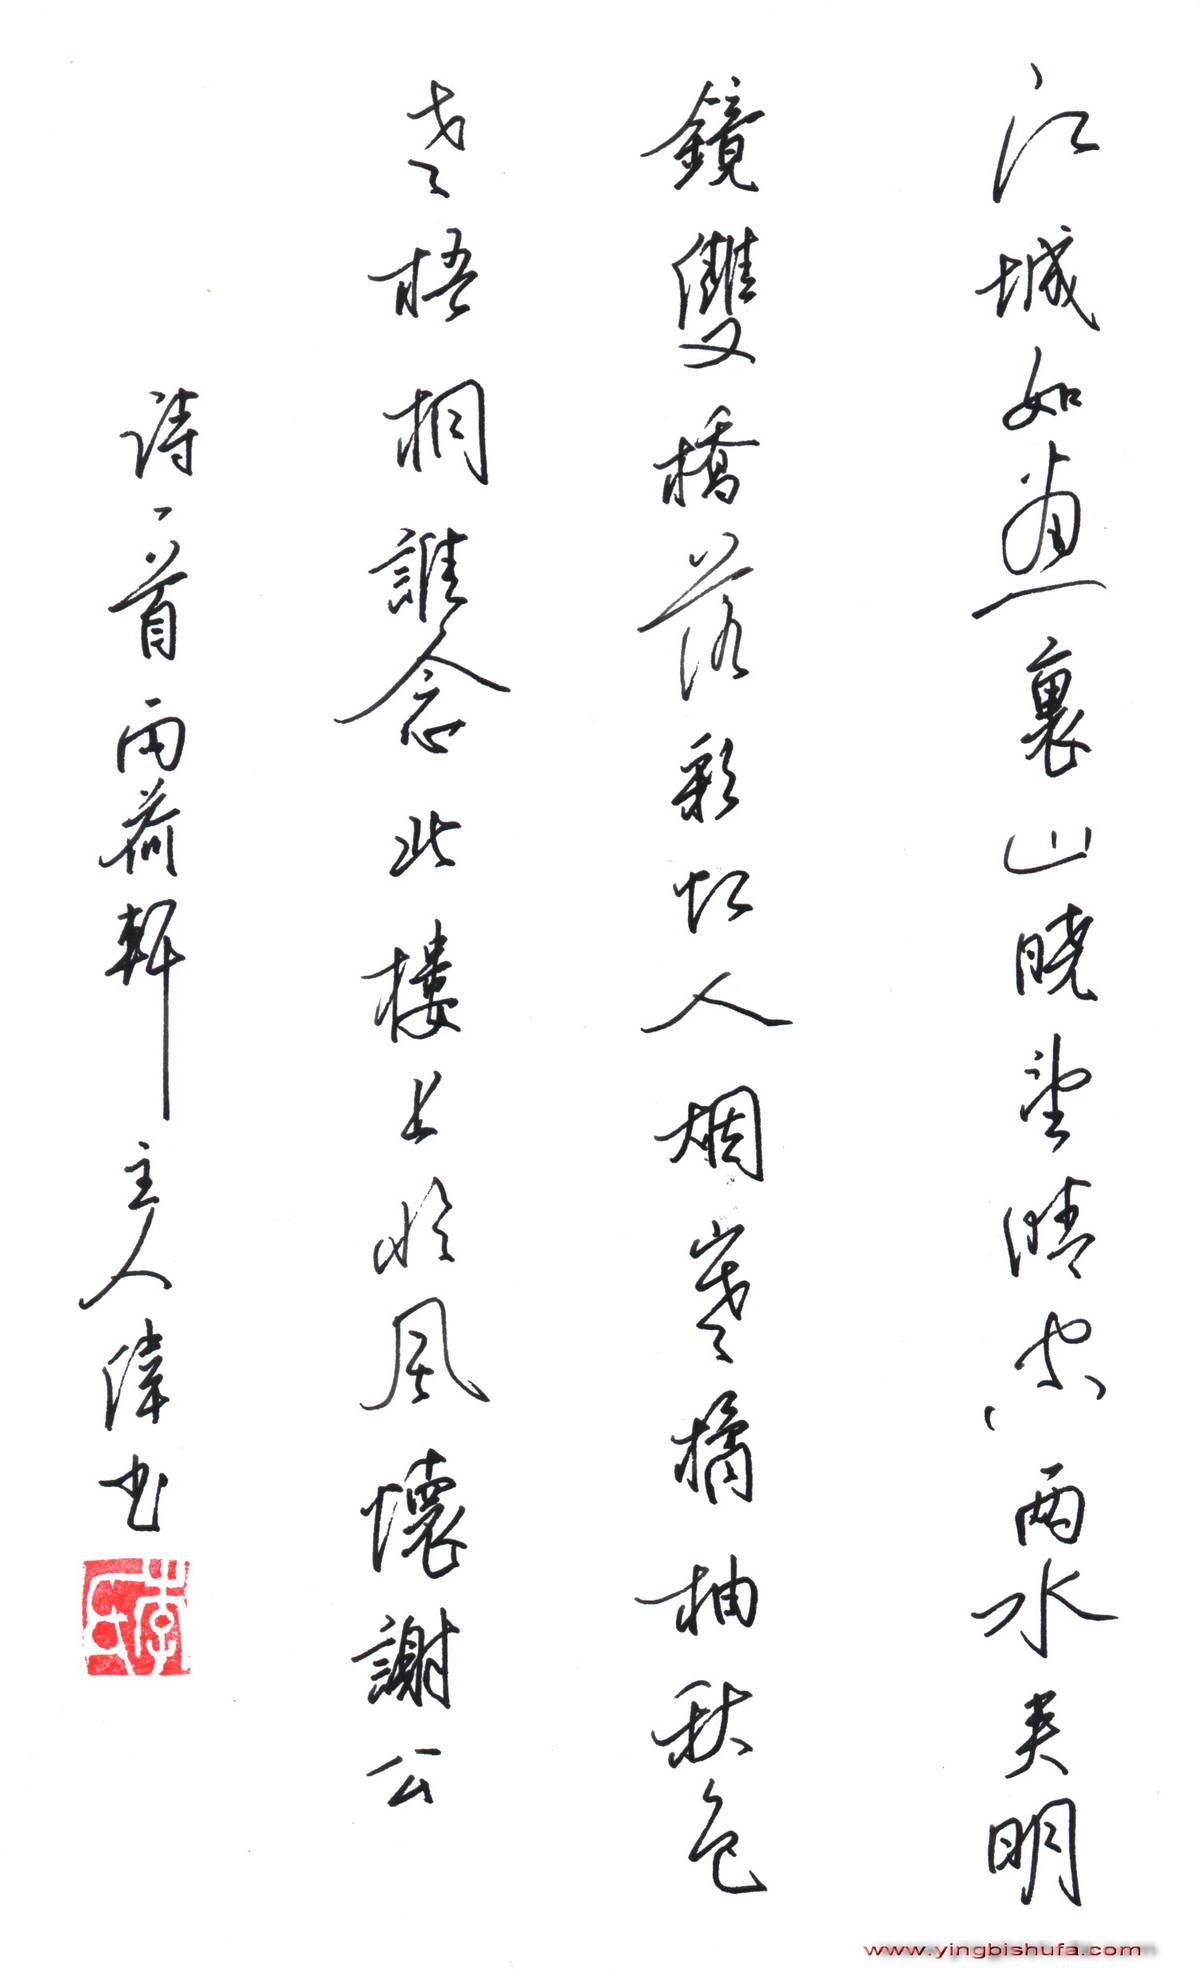 江城如畫裏山曉望晴空兩水夾明
鏡雙橋落彩虹人烟寒橘柚秋色
老梧桐誰念此樓上臨風懷謝公
詩一首雨荷軒主人偉书
李氏
www.yingbishufa.com